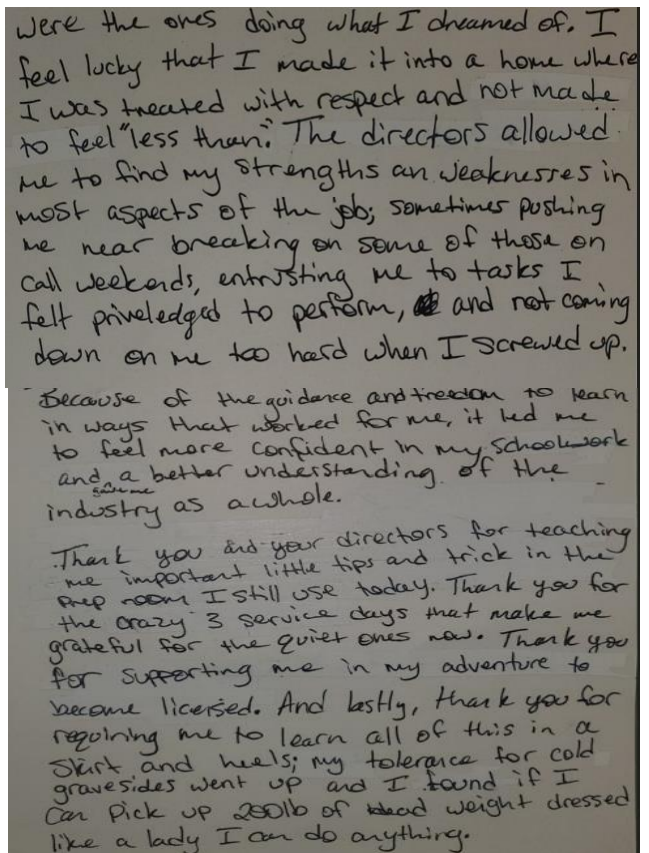 were the ones doing what I dreamed of. I
feel lucky that I made it into a home where
I was treated with respect and not made
to feel "less than". The directors allowed
me to find my strengths an weaknesses in
most aspects of the job; sometimes pushing
me near breaking on some of those on
call weekends, entrusting me to tasks I
felt priveledged to perform, and not coming
down on me too hard when I screwed up.
Because of the guidance and freedom to learn
in ways that worked for me, it led me
to feel more confident in my schoolwork
and gave me a better understanding of the
industry as a whole.
Thank you and your directors for teaching
me important little tips and trick in the
prep room I still use today. Thank you for
the crazy 3 service days that make me
grateful for the quiet ones now. Thank you
for supporting me in my adventure to
become licensed. And lastly, thank you for
requiring me to learn all of this in a
skirt and heels; my tolerance for cold
gravesides went up and I found if I
can pick up 200lb of dead weight dressed
like a lady I can do anything.